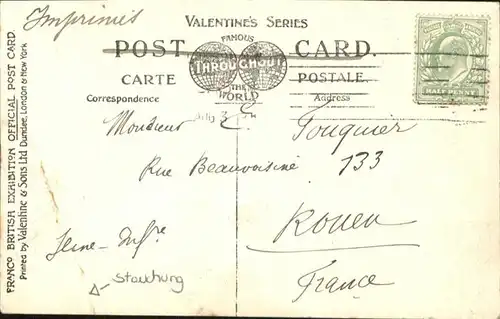 Imprimés
VALENTINE'S SERIES
FAMOUS
THROUGHOUT
THE
WORLD
POST CARD.
CARTE POSTALE.
Correspondence Address
HALF PENNY
Monsieur E. Fouquier
Rue Beauvoisine 133
Rouen
Seine-Infre
France
Stauchung
FRANCO BRITISH EXHIBITION OFFICIAL POST CARD.
Printed by Valentine & Sons Ltd Dundee, London & New York